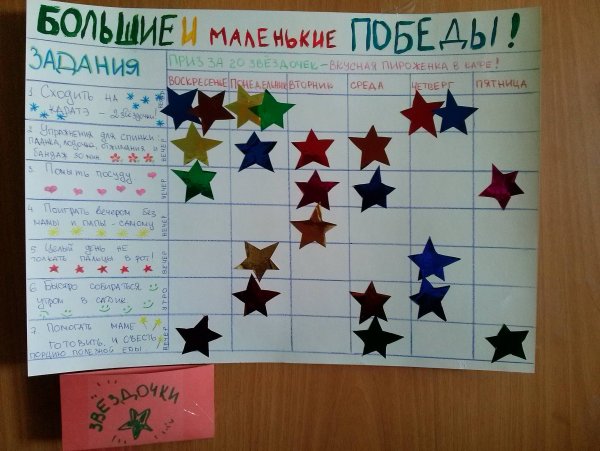 БОЛЬШИЕ И МАЛЕНЬКИЕ ПОБЕДЫ!
ЗАДАНИЯ
ПРИЗ ЗА 20 ЗВЁЗДОЧЕК - ВКУСНАЯ ПИРОЖЕНКА В КАФЕ!
ВОСКРЕСЕНЬЕ ПОНЕДЕЛЬНИК ВТОРНИК СРЕДА ЧЕТВЕРГ ПЯТНИЦА
1 Сходить на
каратэ - 2 звёздочки!
2 Упражнения для спинки:
лодочка, отжимания и
бандаж 30 мин
ВЕЧЕР
3 Помыть посуду
ВЕЧЕР
4 Поиграть вечером без
мамы и папы - самому
ВЕЧЕР
5 Целый день не
толкать пальцы в рот!
ВЕЧЕР
6 Быстро собираться
утром в садик
УТРО
7 Помогать маме
готовить и съесть
порцию полезной еды.
ВЕЧЕР
ЗВЁЗДОЧКИ